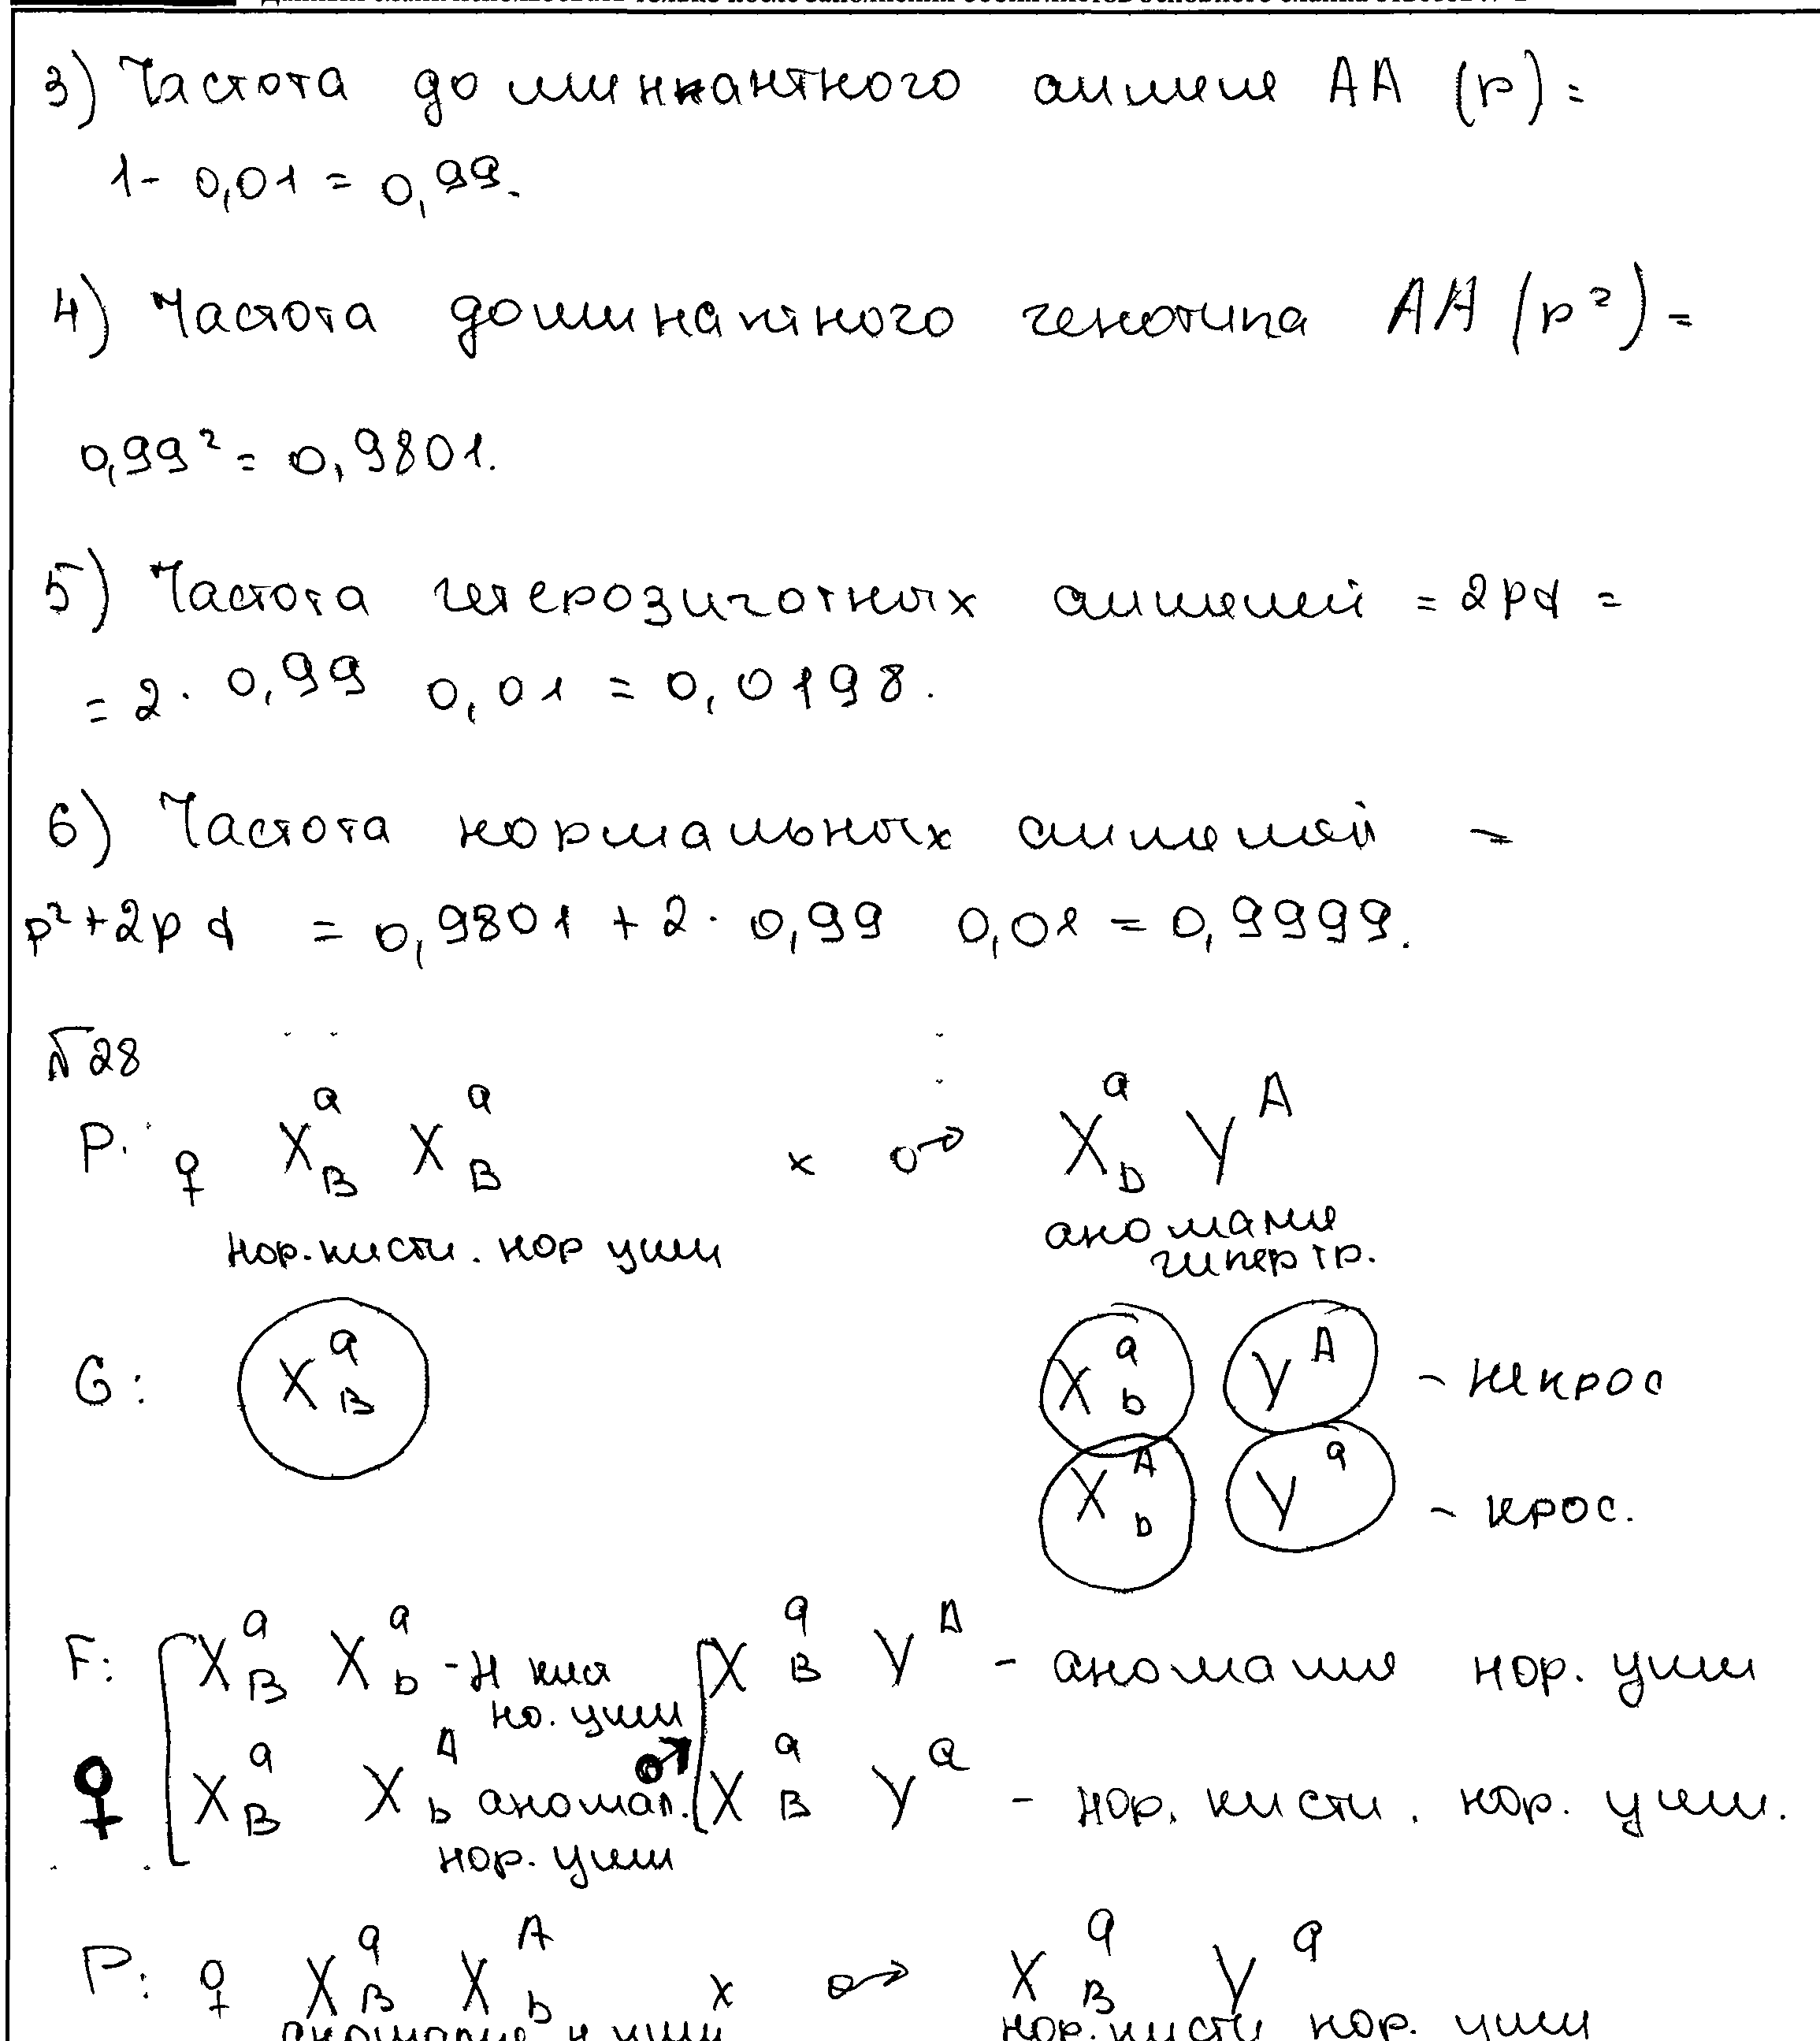 3) Частота доминнкантного аллеля АА (p) =
1 - 0,01 = 0,99.
4) Частота доминантного генотипа АА (p²) =
0,99² = 0,9801.
5) Частота гетерозиготных аллелей = 2pq =
= 2 · 0,99 0,01 = 0,0198.
6) Частота нормальных аллелей =
p² + 2pq = 0,9801 + 2 · 0,99 0,01 = 0,9999.
№28
P: ♀ XᵃB XᵃB x ♂ Xᵃb Yᴬ
нор. кисти. нор уши аномалия
гипертр.
G: XᵃB Xᵃb Yᴬ - некрос
Xᴬb Yᵃ - крос.
F: XᵃB Xᵃb - н кис XᵃB Yᴬ - аномалия нор. уши
но. уши
♀ XᵃB Xᴬb аномал. ♂ XᵃB Yᵃ - нор. кисти. нор. уши.
нор. уши
P: ♀ XᵃB Xᴬb x ♂ XᵃB Yᵃ
аномалия н уши нор. кисти нор. уши